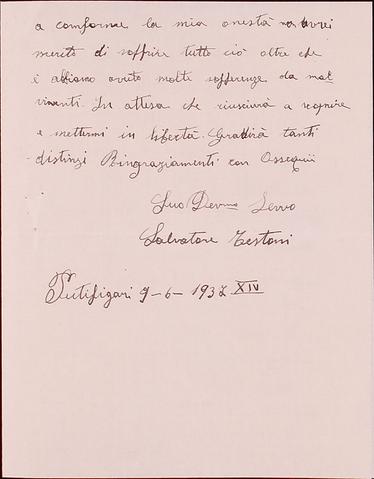 a comforme la mia onestà non avrei
merito di soffrire tutto ciò oltre che
e abbiamo avuto molte sofferenze da mal
viventi. In attesa che riuscirà a
e mettermi in libertà. Gradirà tanti
distinzi Ringraziamenti con Ossequii
Suo Dev.mo Servo
Salvatore Testoni
Putifigari 9-6-1937 XIV